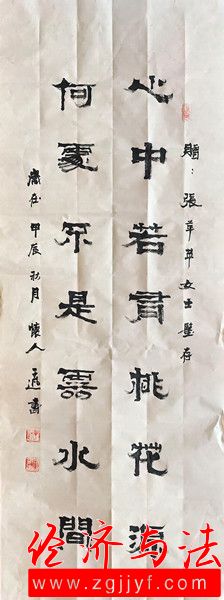 贈：張苹苹女士鑒存
心中若有桃花源
何處不是雲水間
歲在甲辰秋月懷人
经济与法
www.zgjjyf.com